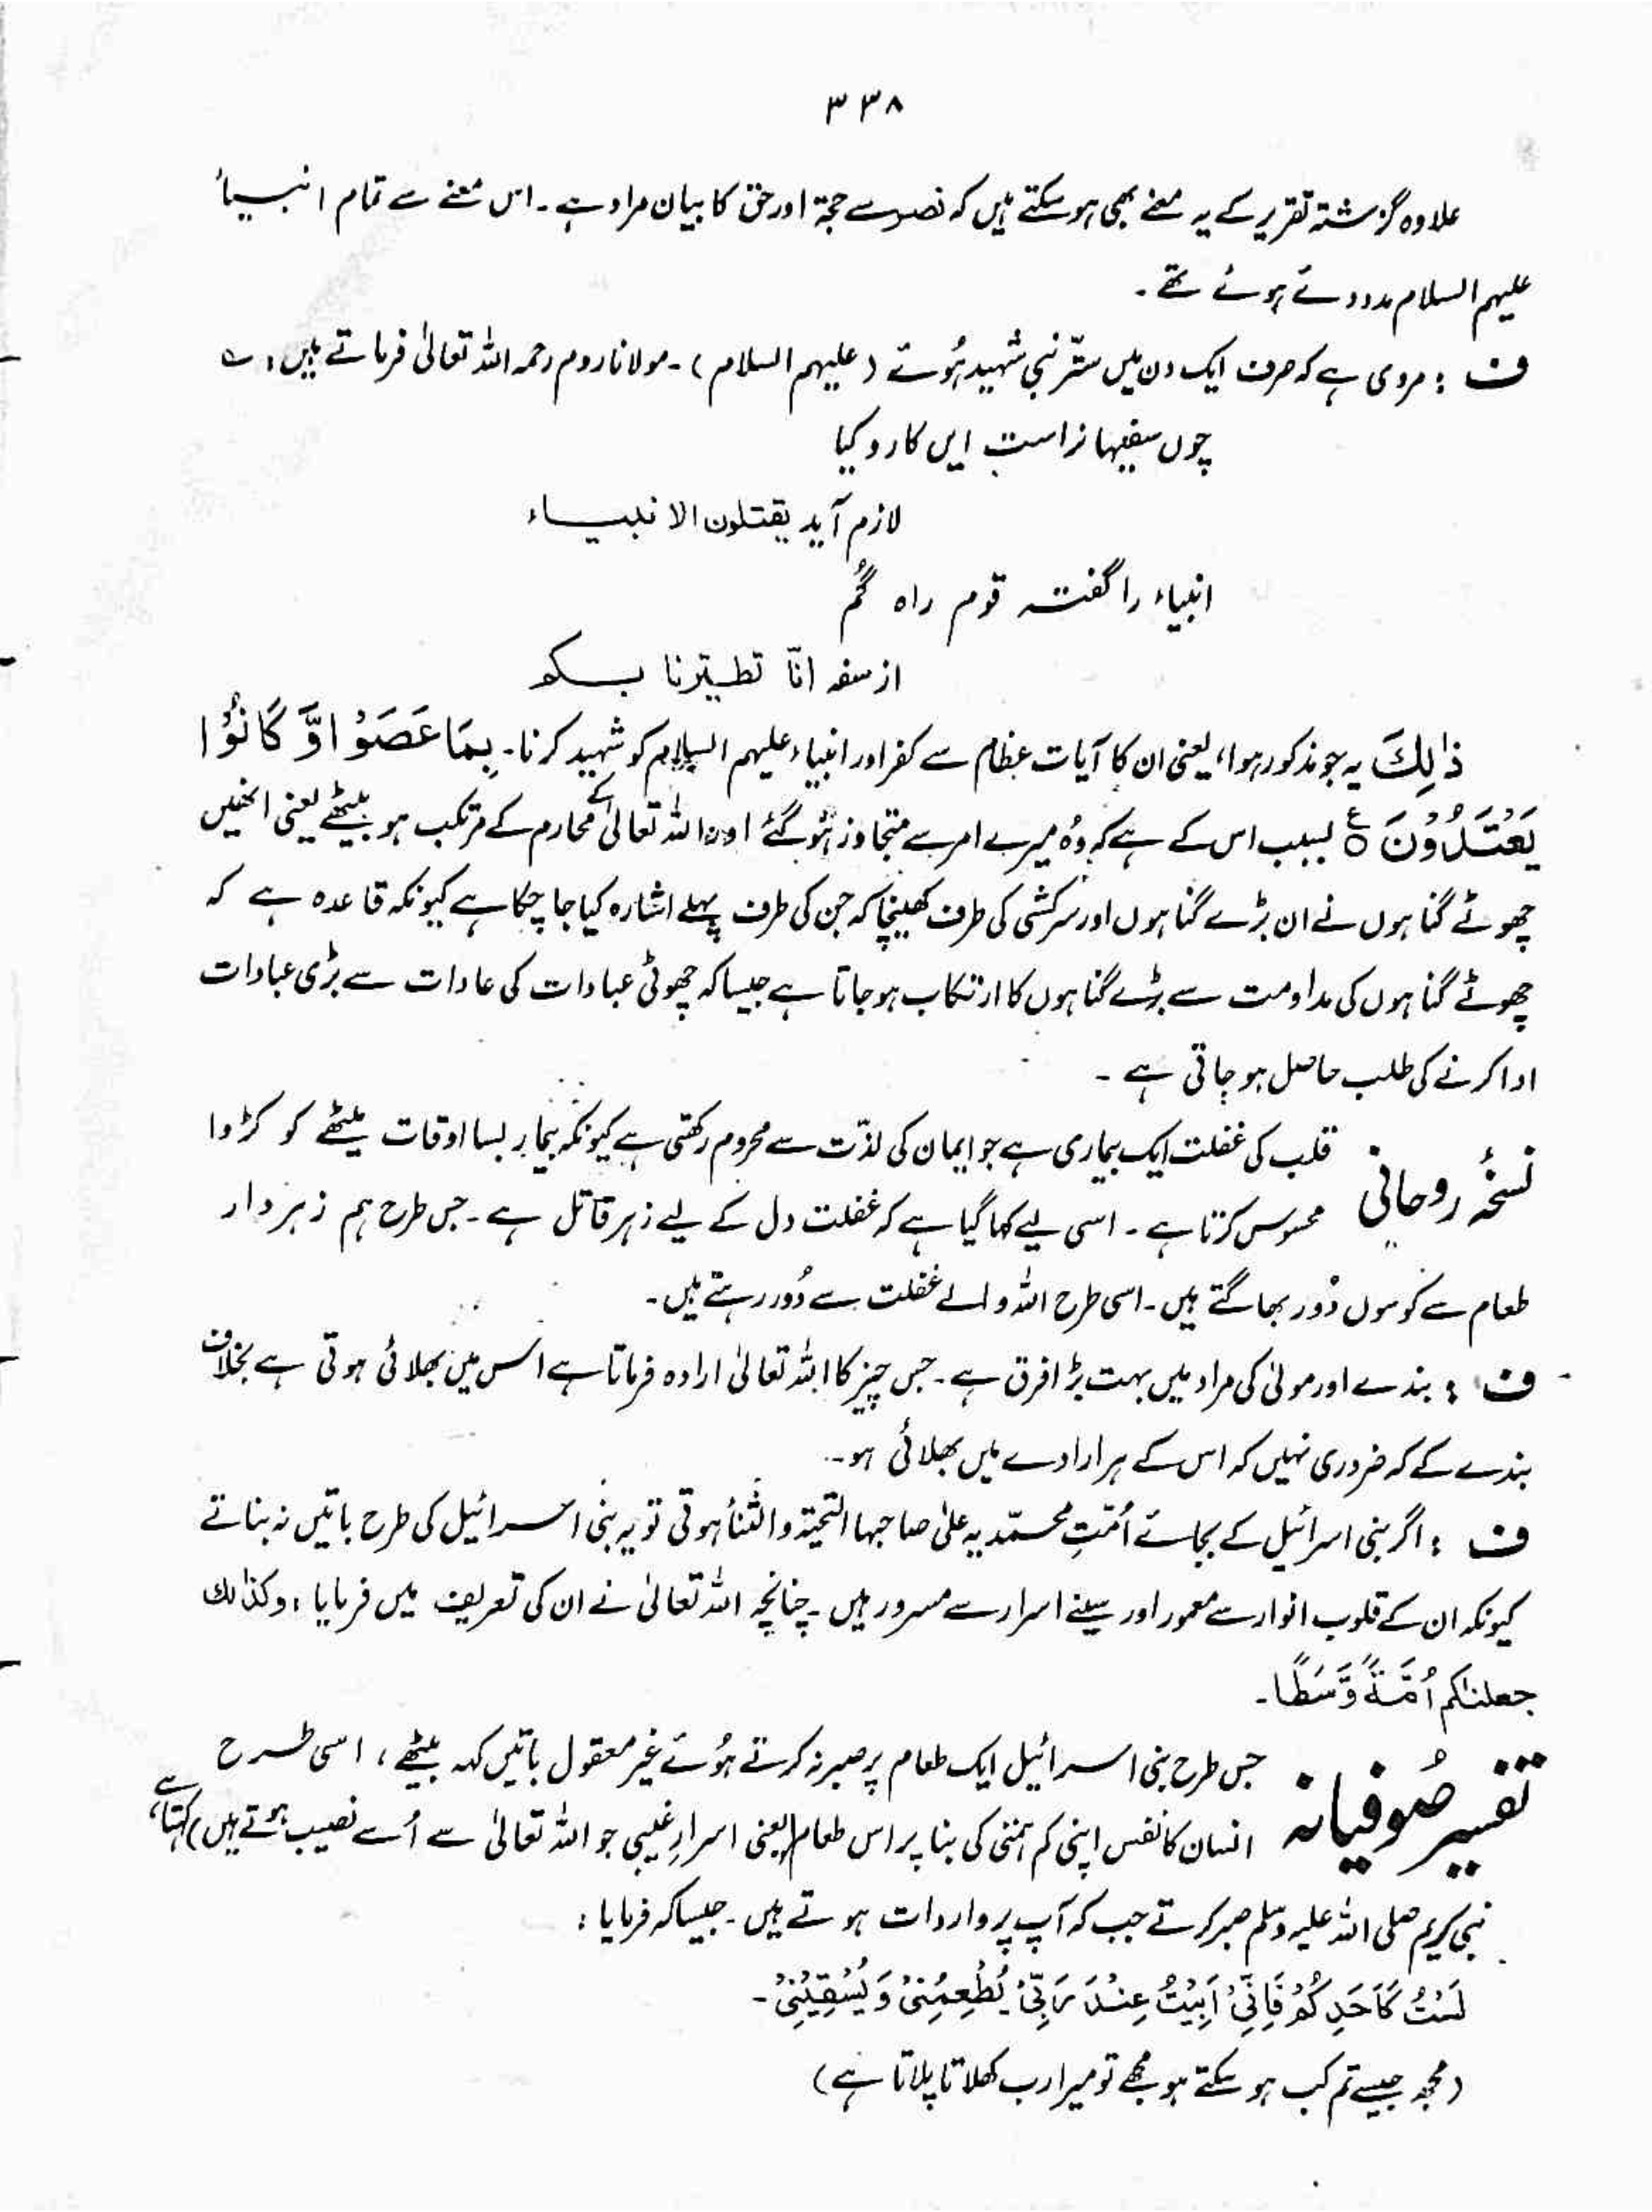 ۳۳۸
علاوہ گزشتہ تقریر کے یہ معنے بھی ہو سکتے ہیں کہ نصر سے حجۃ اور حق کا بیان مراد ہے۔ اس معنے سے تمام انبیاء
علیہم السلام مدد دئے ہوئے تھے۔
ف : مروی ہے کہ صرف ایک دن میں ستّر نبی شہید ہُوئے (علیہم السلام)۔ مولانا روم رحمہ اللہ تعالیٰ فرماتے ہیں : ؎
چوں سفیہا نراست ایں کار و کیا
لازم آید یقتلون الانبیاء
انبیاء را گفتہ قوم راہ گُم
از سفہ انّا تطیّرنا بکم
ذٰلِكَ یہ جو مذکور ہوا، یعنی ان کا آیات عظام سے کفر اور انبیاء علیہم السلام کو شہید کرنا۔ بِمَا عَصَوْا وَّ كَانُوْا
يَعْتَدُوْنَ ۝ ع بسبب اس کے ہے کہ وُہ میرے امر سے متجاوز ہُوگئے اور اللہ تعالیٰ کے محارم کے مرتکب ہو بیٹھے یعنی انھیں
چھوٹے گناہوں نے ان بڑے گناہوں اور سرکشی کی طرف کھینچا کہ جن کی طرف پہلے اشارہ کیا جا چکا ہے کیونکہ قاعدہ ہے کہ
چھوٹے گناہوں کی مداومت سے بڑے گناہوں کا ارتکاب ہو جاتا ہے جیسا کہ چھوٹی عبادات کی عادات سے بڑی عبادات
ادا کرنے کی طلب حاصل ہو جاتی ہے ۔
نسخۂ روحانی قلب کی غفلت ایک بیماری ہے جو ایمان کی لذّت سے محروم رکھتی ہے کیونکہ بیمار بسا اوقات میٹھے کو کڑوا
محسوس کرتا ہے ۔ اسی لیے کہا گیا ہے کہ غفلت دل کے لیے زہر قاتل ہے ۔ جس طرح ہم زہر دار
طعام سے کوسوں دُور بھاگتے ہیں۔ اسی طرح اللہ والے غفلت سے دُور رہتے ہیں۔
ف : بندے اور مولیٰ کی مراد میں بہت بڑا فرق ہے ۔ جس چیز کا اللہ تعالیٰ ارادہ فرماتا ہے اس میں بھلائی ہوتی ہے بخلاف
بندے کے کہ ضروری نہیں کہ اس کے ہر ارادے میں بھلائی ہو۔
ف : اگر بنی اسرائیل کے بجائے اُمّتِ محمّدیہ علیٰ صاحبہا التحیّۃ والثناء ہوتی تو یہ بنی اسرائیل کی طرح باتیں نہ بناتے
کیونکہ ان کے قلوب انوار سے معمور اور سینے اسرار سے مسرور ہیں ۔ چنانچہ اللہ تعالیٰ نے ان کی تعریف میں فرمایا : وکذٰلك
جعلنٰکم اُمَّۃً وَّسَطًا۔
تفسیر صُوفیانہ جس طرح بنی اسرائیل ایک طعام پر صبر نہ کرتے ہُوئے غیر معقول باتیں کہہ بیٹھے ، اسی طرح
انسان کا نفس اپنی کم ہمتی کی بنا پر اس طعام (یعنی اسرارِ غیبی جو اللہ تعالیٰ سے اُسے نصیب ہوتے ہیں) کہتا ہے،
نبی کریم صلی اللہ علیہ وسلم صبر کرتے جب کہ آپ پر واردات ہوتے ہیں ۔ جیسا کہ فرمایا :
لَسْتُ كَاَحَدِكُمْ فَاِنِّیْ اَبِیْتُ عِنْدَ رَبِّیْ یُطْعِمُنِیْ وَیُسْقِیْنِیْ۔
(مجھ جیسے تم کب ہو سکتے ہو مجھے تو میرا رب کھلاتا پلاتا ہے)